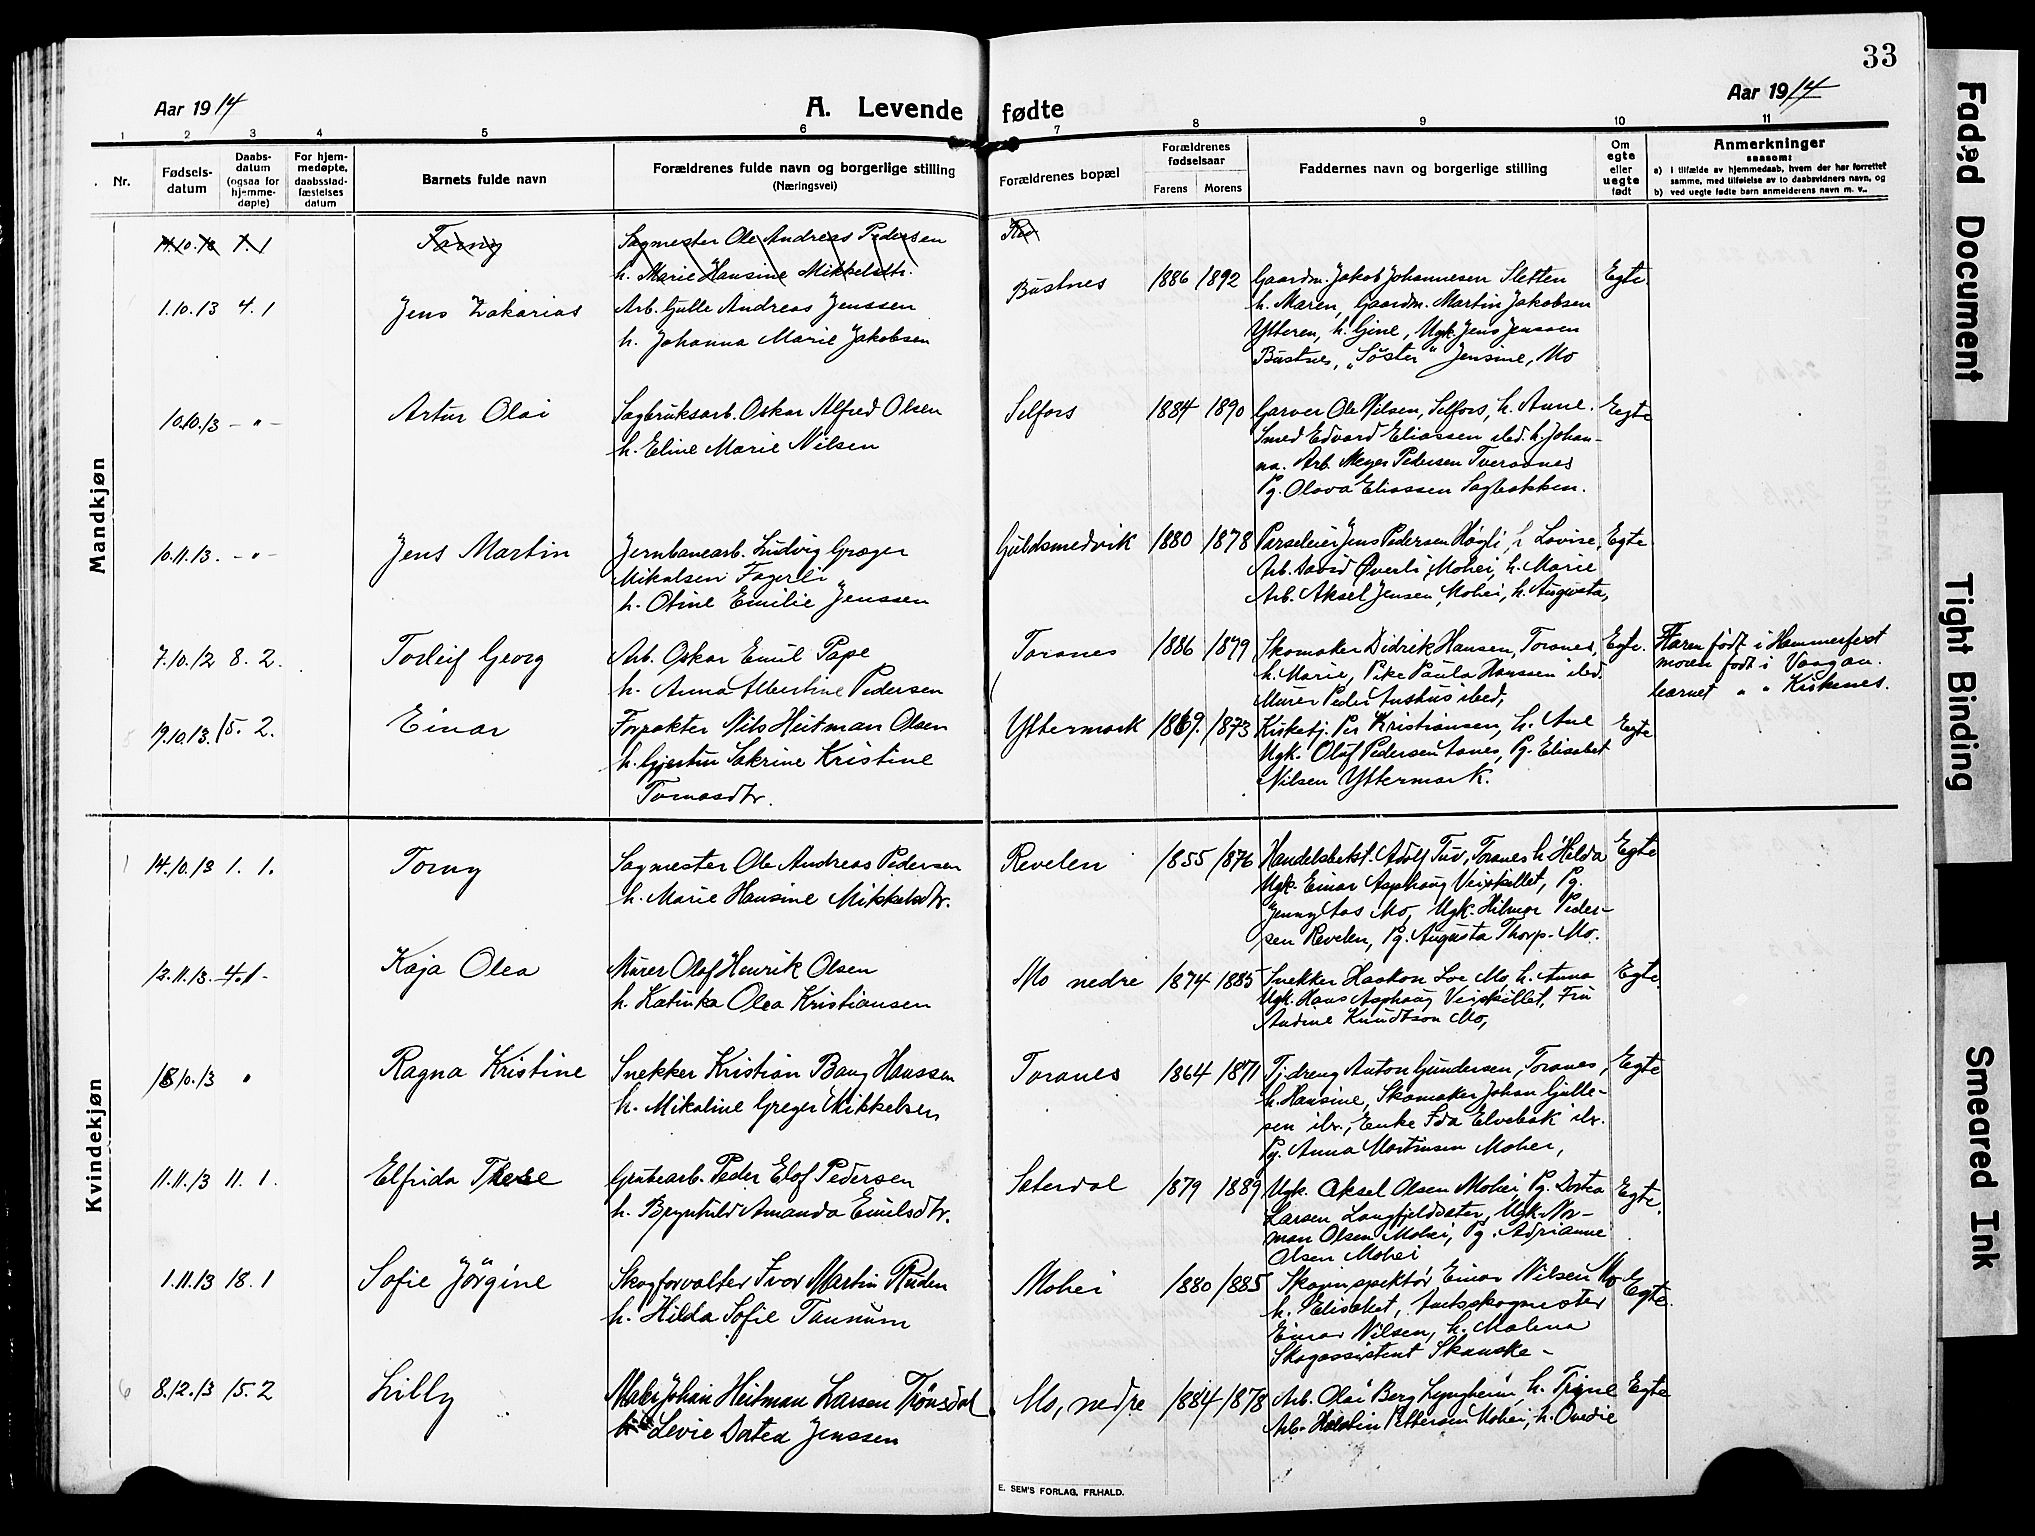 33
Aar 1914
A. Levende fødte
Aar 1914
1 2 3 4 5 6 7 8 9 10 11
Nr.
Fødsels-
datum
Daabs-
datum
(ogsaa for
hjemme-
døpte)
For hjem-
medøpte,
daabsstad-
fæstelses
datum
Barnets fulde navn
Forældrenes fulde navn og borgerlige stilling
(Næringsvei)
Forældrenes bopæl
Forældrenes
fødselsaar
Farens Morens
Faddernes navn og borgerlige stilling
Om
egte
eller
uegte
født
Anmerkninger
saasom:
a) i tilfælde av hjemmedaab, hvem der har forrettet
samme, med tilføielse av to daabsvidners navn, og
b) ved uegte fødte børn anmelderens navn m. v..
Mandkjøn
14.10.13 1.1 Torny Sagmester Ole Andreas Pedersen Rev
h. Marie Hansine Mikkelsdtr.
1.10.13 4.1 Jens Zakarias Arb. Gulle Andreas Jenssen
h. Johanna Marie Jakobsen
Bustnes 1886 1892 Gaardm. Jakob Johannesen Sletten Egte
h. Maren, Gaardm. Martin Jakobsen
Ytteren, h. Gine, Ugk. Jens Jenssen
Bustnes, „Søster" Jensine, Mo
10.10.13 - " - Artur Olai Sagbruksarb. Oskar Alfred Olsen
h. Eline Marie Nilsen
Selfors 1884 1890 Garver Ole Nilsen, Selfors, h. Anne. Egte
Smed Edvard Eliassen ibd. h. Johan-
na. Arb. Meyer Pedersen Tveraanes
Pg. Olava Eliassen Sagbakken.
10.11.13. - " - Jens Martin Jernbanearb. Ludvig Græger
Mikalsen Fagerli
h. Otine Emilie Jenssen
Guldsmedvik 1880 1878 Parseleier Jens Pedersen Høgli, h Lovise, Egte
Arb. David Øverli, Mohei, h. Marie
Arb. Aksel Jensen, Mohei, h. Augusta,
7.10.12 8.2. Torleif Georg Arb. Oskar Emil Pape
h. Anna Albertine Pedersen
Toranes 1886 1879 Skomaker Didrik Hansen, Toranes, Egte.
h. Marie, Pike Paula Hanssen ibd.
Murer Peder ibed,
Faren født i Hammerfest
moren født i Vaagan.
barnet " " Kirkenes.
19.10.13. 15.2. Einar Forpakter Nils Heitman Olsen
h. Gjertin Sakrine Kristine
Tomasdtr.
Yttermark 1869. 1873 Kirketj. Per Kristiansen, h. Ane Egte
Ugk. Oluf Pedersen Aanes, Pg. Elisabet
Nilsen Yttermark.
Kvindekjøn
1 14.10.13 1.1. Torny Sagmester Ole Andreas Pedersen
h. Marie Hansine Mikkelsdtr.
Revelen 1855 1876 Handelsbetst. Adolf Tuv, Toranes h Hilda Egte
Ugk. Einar Asphaug Veiskillet, Pg.
Jenny Aas Mo, Ugk. Hilmar Peder-
sen Revelen, Pg. Augusta Thorp. Mo.
12.11.13. 4.1- Kaja Olea Murer Olaf Henrik Olsen
h. Katinka Olea Kristiansen
Mo nedre 1874 1885 Snekker Haakon Loe Mo, h. Anna Egte
Ugk. Hans Asphaug Veiskillet, Fru
Andine Knudtson Mo,
18.10.13 " Ragna Kristine Snekker Kristian Bang Hanssen
h. Mikaline Greger Mikkelsen
Toranes 1864 1871 Tj.dreng Anton Gundersen, Toranes, Egte
h. Hansine, Skomaker Johan Gulle-
sen ib., Enke Ida Elvebak ib.
Pg. Anna Martinsen Mohei,
11.11.13 11.1. Elfrida Therese Grubearb. Peder Elof Pedersen
h. Brynhild Amanda Emilsdtr.
Sæterdal 1879 1889 Ugk. Aksel Olsen Mohei, Pg. Dortea Egte.
Larsen Langfjeldsæter, Ugk. No-
man Olsen Mohei, Pg. Adrianne
Olsen Mohei
1.11.13 18.1 Sofie Jörgine Skogforvalter Ivar Martin Ruden
h. Hilda Sofie Tanum
Mohei 1880 1885 Skoginspektör Einar Nilsen Mo Egte.
h. Elisabet, Amtsskogmester
Einar Nilsen, h. Malena
Skogassistent Skanske -
6 8.12.13 15.2 Lilly Maler Johan Heitman Larsen Trönsdal
h. Levie Dortea Jenssen
Mo, nedre 1884 1878 Arb. Olai Berg Lyngheim, h. Trine Egte
Arb. Halstin Pettersen Mohei, h. Ovedie
E. SEM'S FORLAG, FR.HALD.
Faded Document
Tight Binding
Smeared Ink